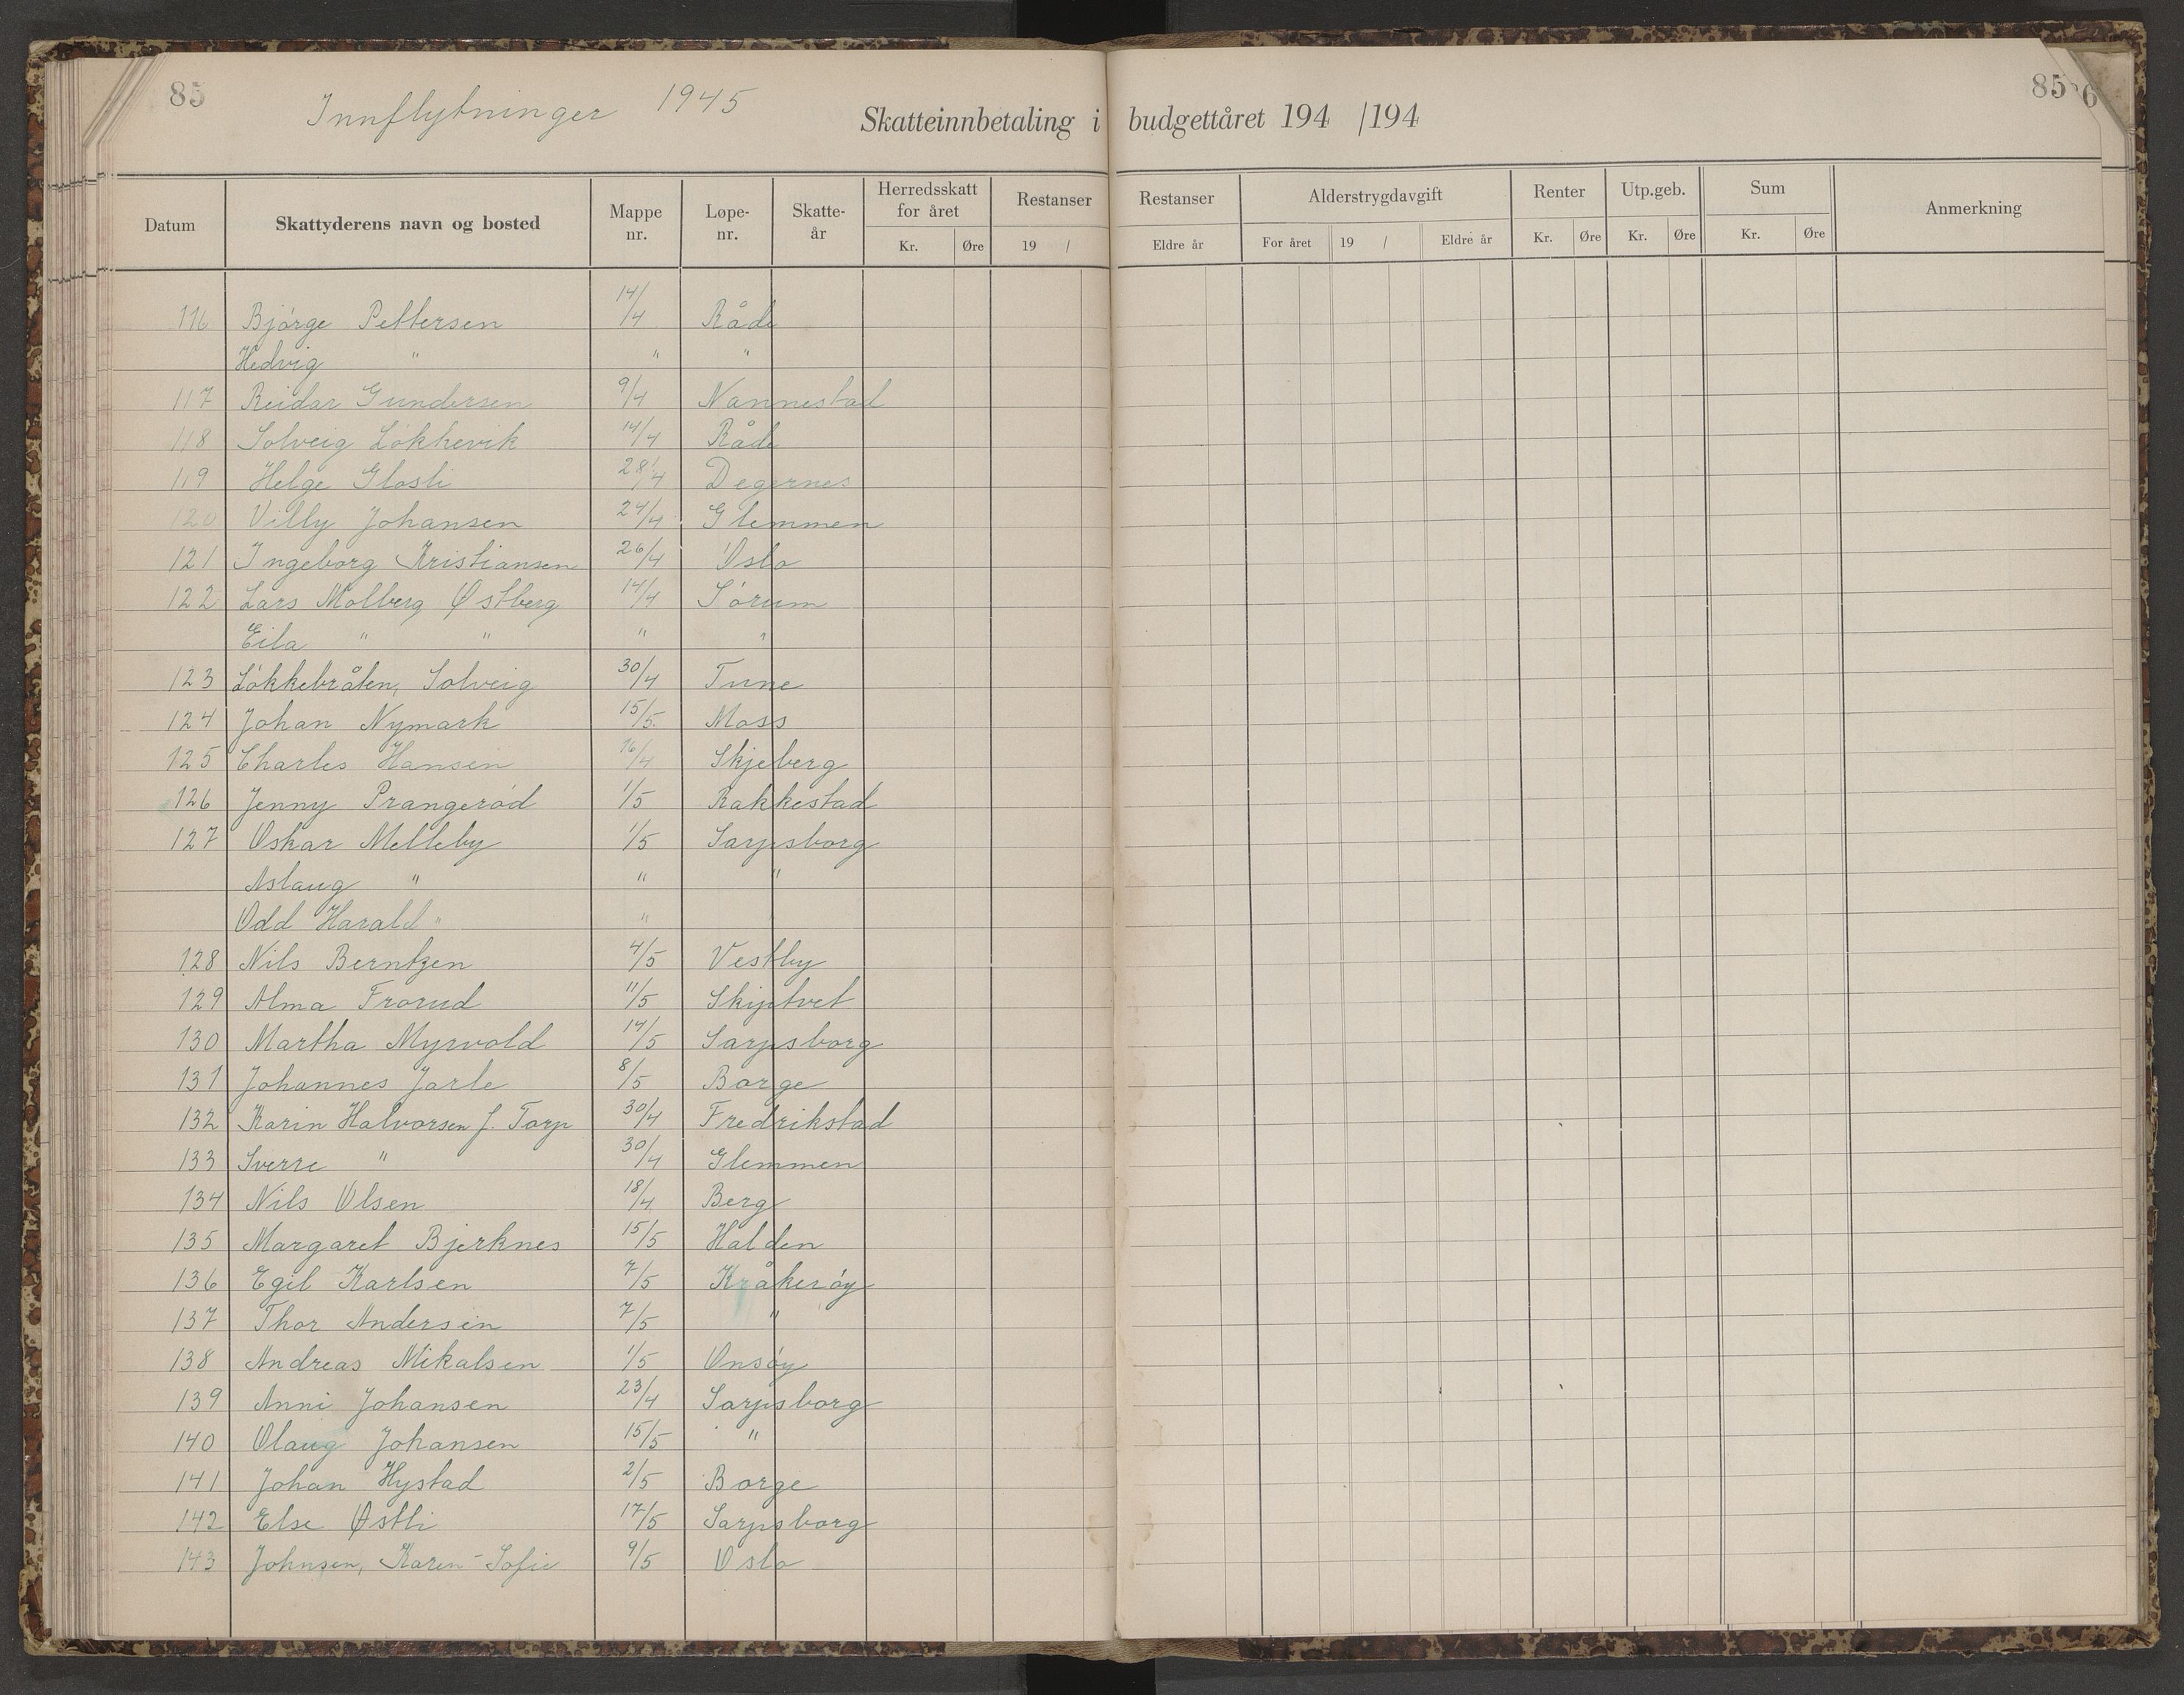 85
Innflytninger 1945
Skatteinnbetaling i budgettåret 194 /194
85
6
Datum Skattyderens navn og bosted Mappe nr. Løpe-nr. Skatte-år Herredsskatt for året Kr. Øre Restanser 19 / Restanser Eldre år Alderstrygdavgift For året 19 / Eldre år Renter Kr. Øre Utp.geb. Kr. Øre Sum Kr. Øre Anmerkning
116 Bjørge Pettersen 14/4 Råde
Hedvig " " "
117 Reidar Gundersen 9/4 Nannestad
118 Solveig Løkkevik 14/4 Råde
119 Helge Glosli 28/4 Degernes
120 Villy Johansen 24/4 Glemmen
121 Ingeborg Kristiansen 26/4 Oslo
122 Lars Molberg Østberg 14/4 Sørum
Eila " " " "
123 Løkkebråten, Solveig 30/4 Tune
124 Johan Nymark 15/5 Moss
125 Charles Hansen 16/4 Skjeberg
126 Jenny Prangerød 1/5 Rakkestad
127 Oskar Melleby 1/5 Sarpsborg
Aslaug " " "
Odd Harald " "
128 Nils Berntzen 4/5 Vestby
129 Alma Frorud 11/5 Skiptvet
130 Martha Myrvold 14/5 Sarpsborg
131 Johannes Jarle 8/5 Borge
132 Karin Halvorsen f. Torp 30/4 Fredrikstad
133 Sverre " 30/4 Glemmen
134 Nils Olsen 18/4 Berg
135 Margaret Bjerknes 15/5 Halden
136 Egil Karlsen 7/5 Kråkerøy
137 Thor Andersen 7/5 "
138 Andreas Mikalsen 1/5 Onsøy
139 Anni Johansen 23/4 Sarpsborg
140 Olaug Johansen 15/5 "
141 Johan Hystad 2/5 Borge
142 Else Østli 17/5 Sarpsborg
143 Johnsen, Karen-Sofie 9/5 Oslo